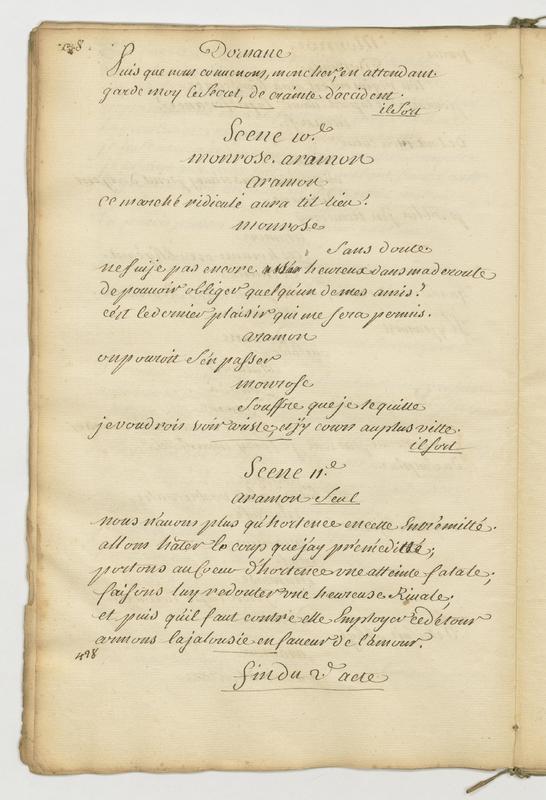 Dornane
Puis que nous convenons, mon cher, en attendant
garde moy le Secret, de crainte d'accident.
il sort
Scene 10.e
monrose. aramon
aramon
ce marché ridicule aura t'il lieu?
monrose
Sans doute
ne suije pas encore heureux dans ma deroute
de pouvoir obliger quelqu'un de mes amis?
c'est le dernier plaisir qui me sera permis.
aramon
on pouroit s'en passer
monrose
Souffre que je te quitte
je voudrois voir ariste, et j'y cours au plus viste.
il sort
Scene 11.e
aramon Seul
nous n'auons plus qu'hortence en cette Extremitté.
allons hâter le coup que j'ay prémedité;
portons au Coeur d'hortence vne atteinte fatale;
faisons luy redouter vne heureuse Riuale;
et puis qu'il faut contre elle Employer ce détour
armons la jalousie en faueur de l'amour.
498
fin du 2.e acte